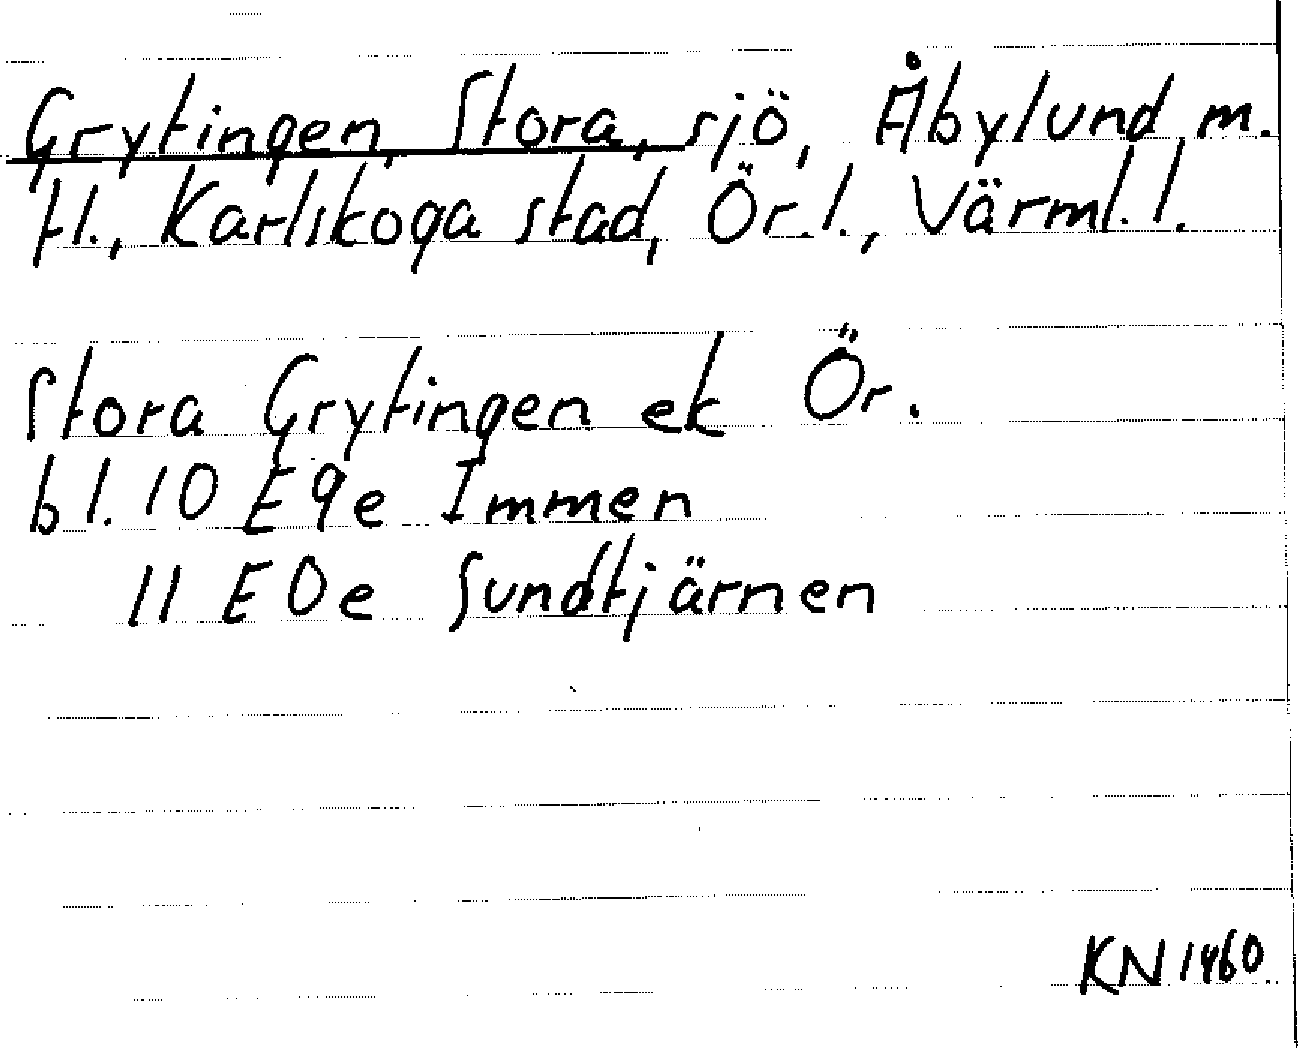 Grytingen, Stora, sjö, Åbylund m.
fl., Karlskoga stad, Ör.l., Värml.l.
Stora Grytingen ek Ör.
bl. 10 E 9e Immen
11 E 0e Sundtjärnen
KN 1460